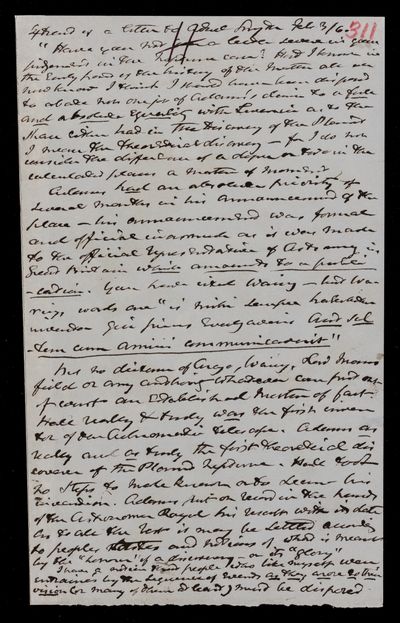 Extract of a letter to Adml Smyth Feb 3/6
311
"Have you not been a little severe in your
judgement in the Neptune case? Had I known in
the Early part of the history of the matter all we
now know I think I should have been disposed
to abate not one jot of Adams's claim to a full
and absolute Equality with Leverrier as to the
share either had in the discovery of the Planet
I mean the theoretical discovery – for I do not
consider the difference of a degree or two in the
calculated places a matter of moment.
Adams had an absolute priority of
several months in his announcement of the
place – his announcement was formal
and official inasmuch as it was made
to the official representative of Astronomy in
Great Britain which amounts to a publi
-cation. You have cited Waring – but Wa
rings words are "is mihi semper habendus
inventor qui primus evulgaverit And sal
-tem cum amicis communicaverit"
But no dictum of Arago, Waring, Lord Morns
field or any authority whatever can put out
of court an Established matter of fact
Hall really & truly was the first inven
tor of the Achromatic telescope. Adams as
really and as truly the first theoretical dis
coverer of the Planet Neptune. Hall took
no steps to make known or to secure his
invention. Adams put on record in the hands
of the Astronomer Royal his result with its date
As to all the rest it may be settled accordg
to peoples tastes and notions of what is meant
by the "honour" of a discovery – or its "glory"
I have a notion that people who like myself were
entrained by the sequence of events as they arose to their
vision (or many of them at least) must be disposed